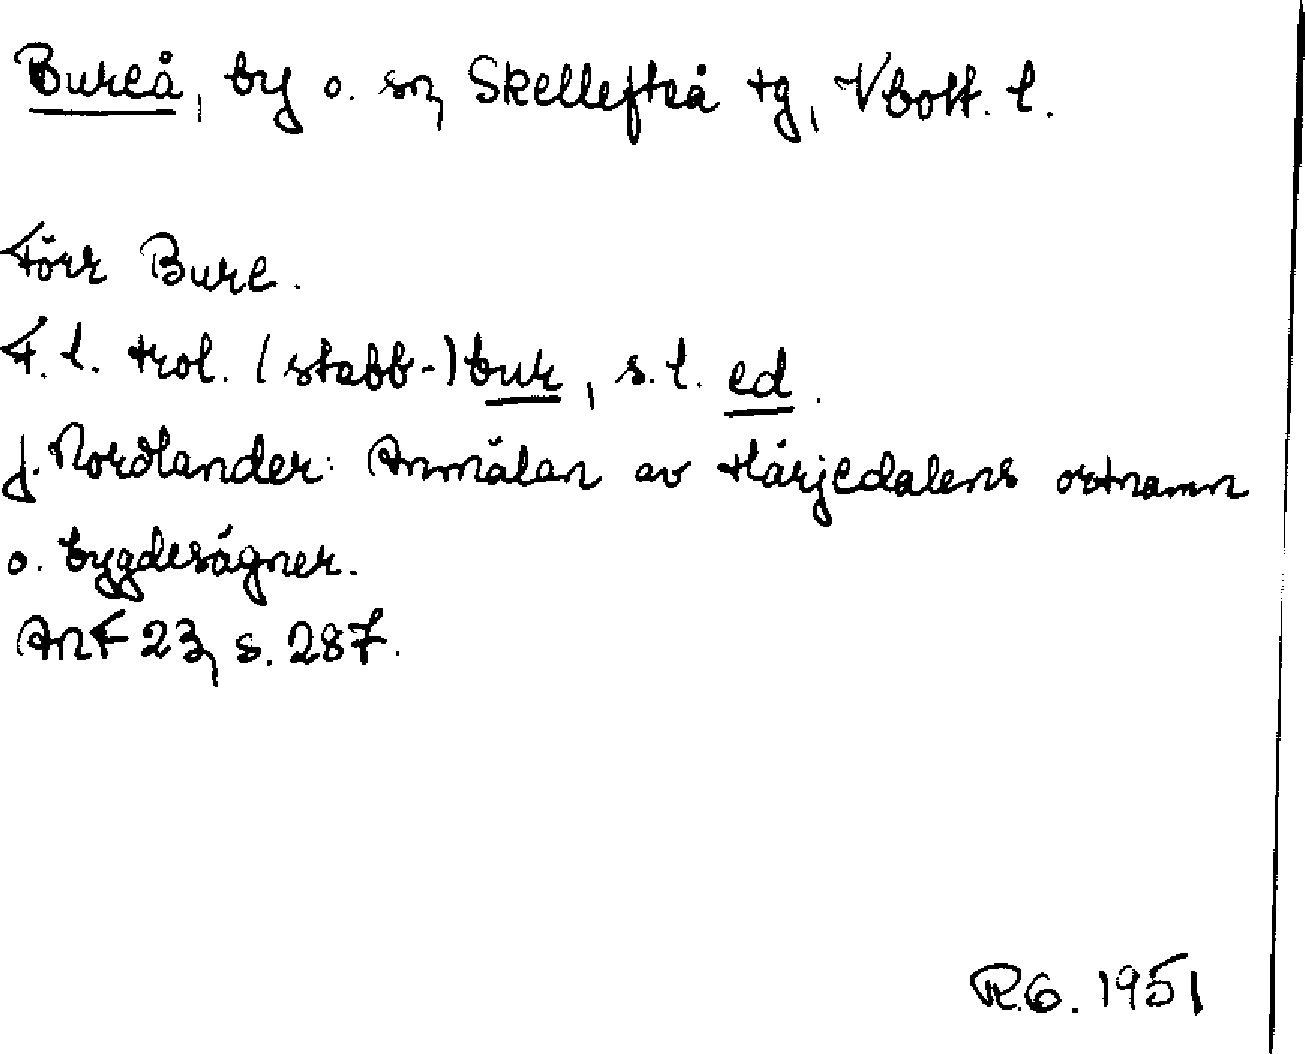 Bureå, by o. sn, Skellefteå tg, Vbott. l.
Förr Bure.
F. l. trol. (stabb-)bur, s. l. ed.
J. Nordlander: Anmälan av Härjedalens ortnamn
o. bygdesägner.
ANF 23, s. 287.
R.G. 1951